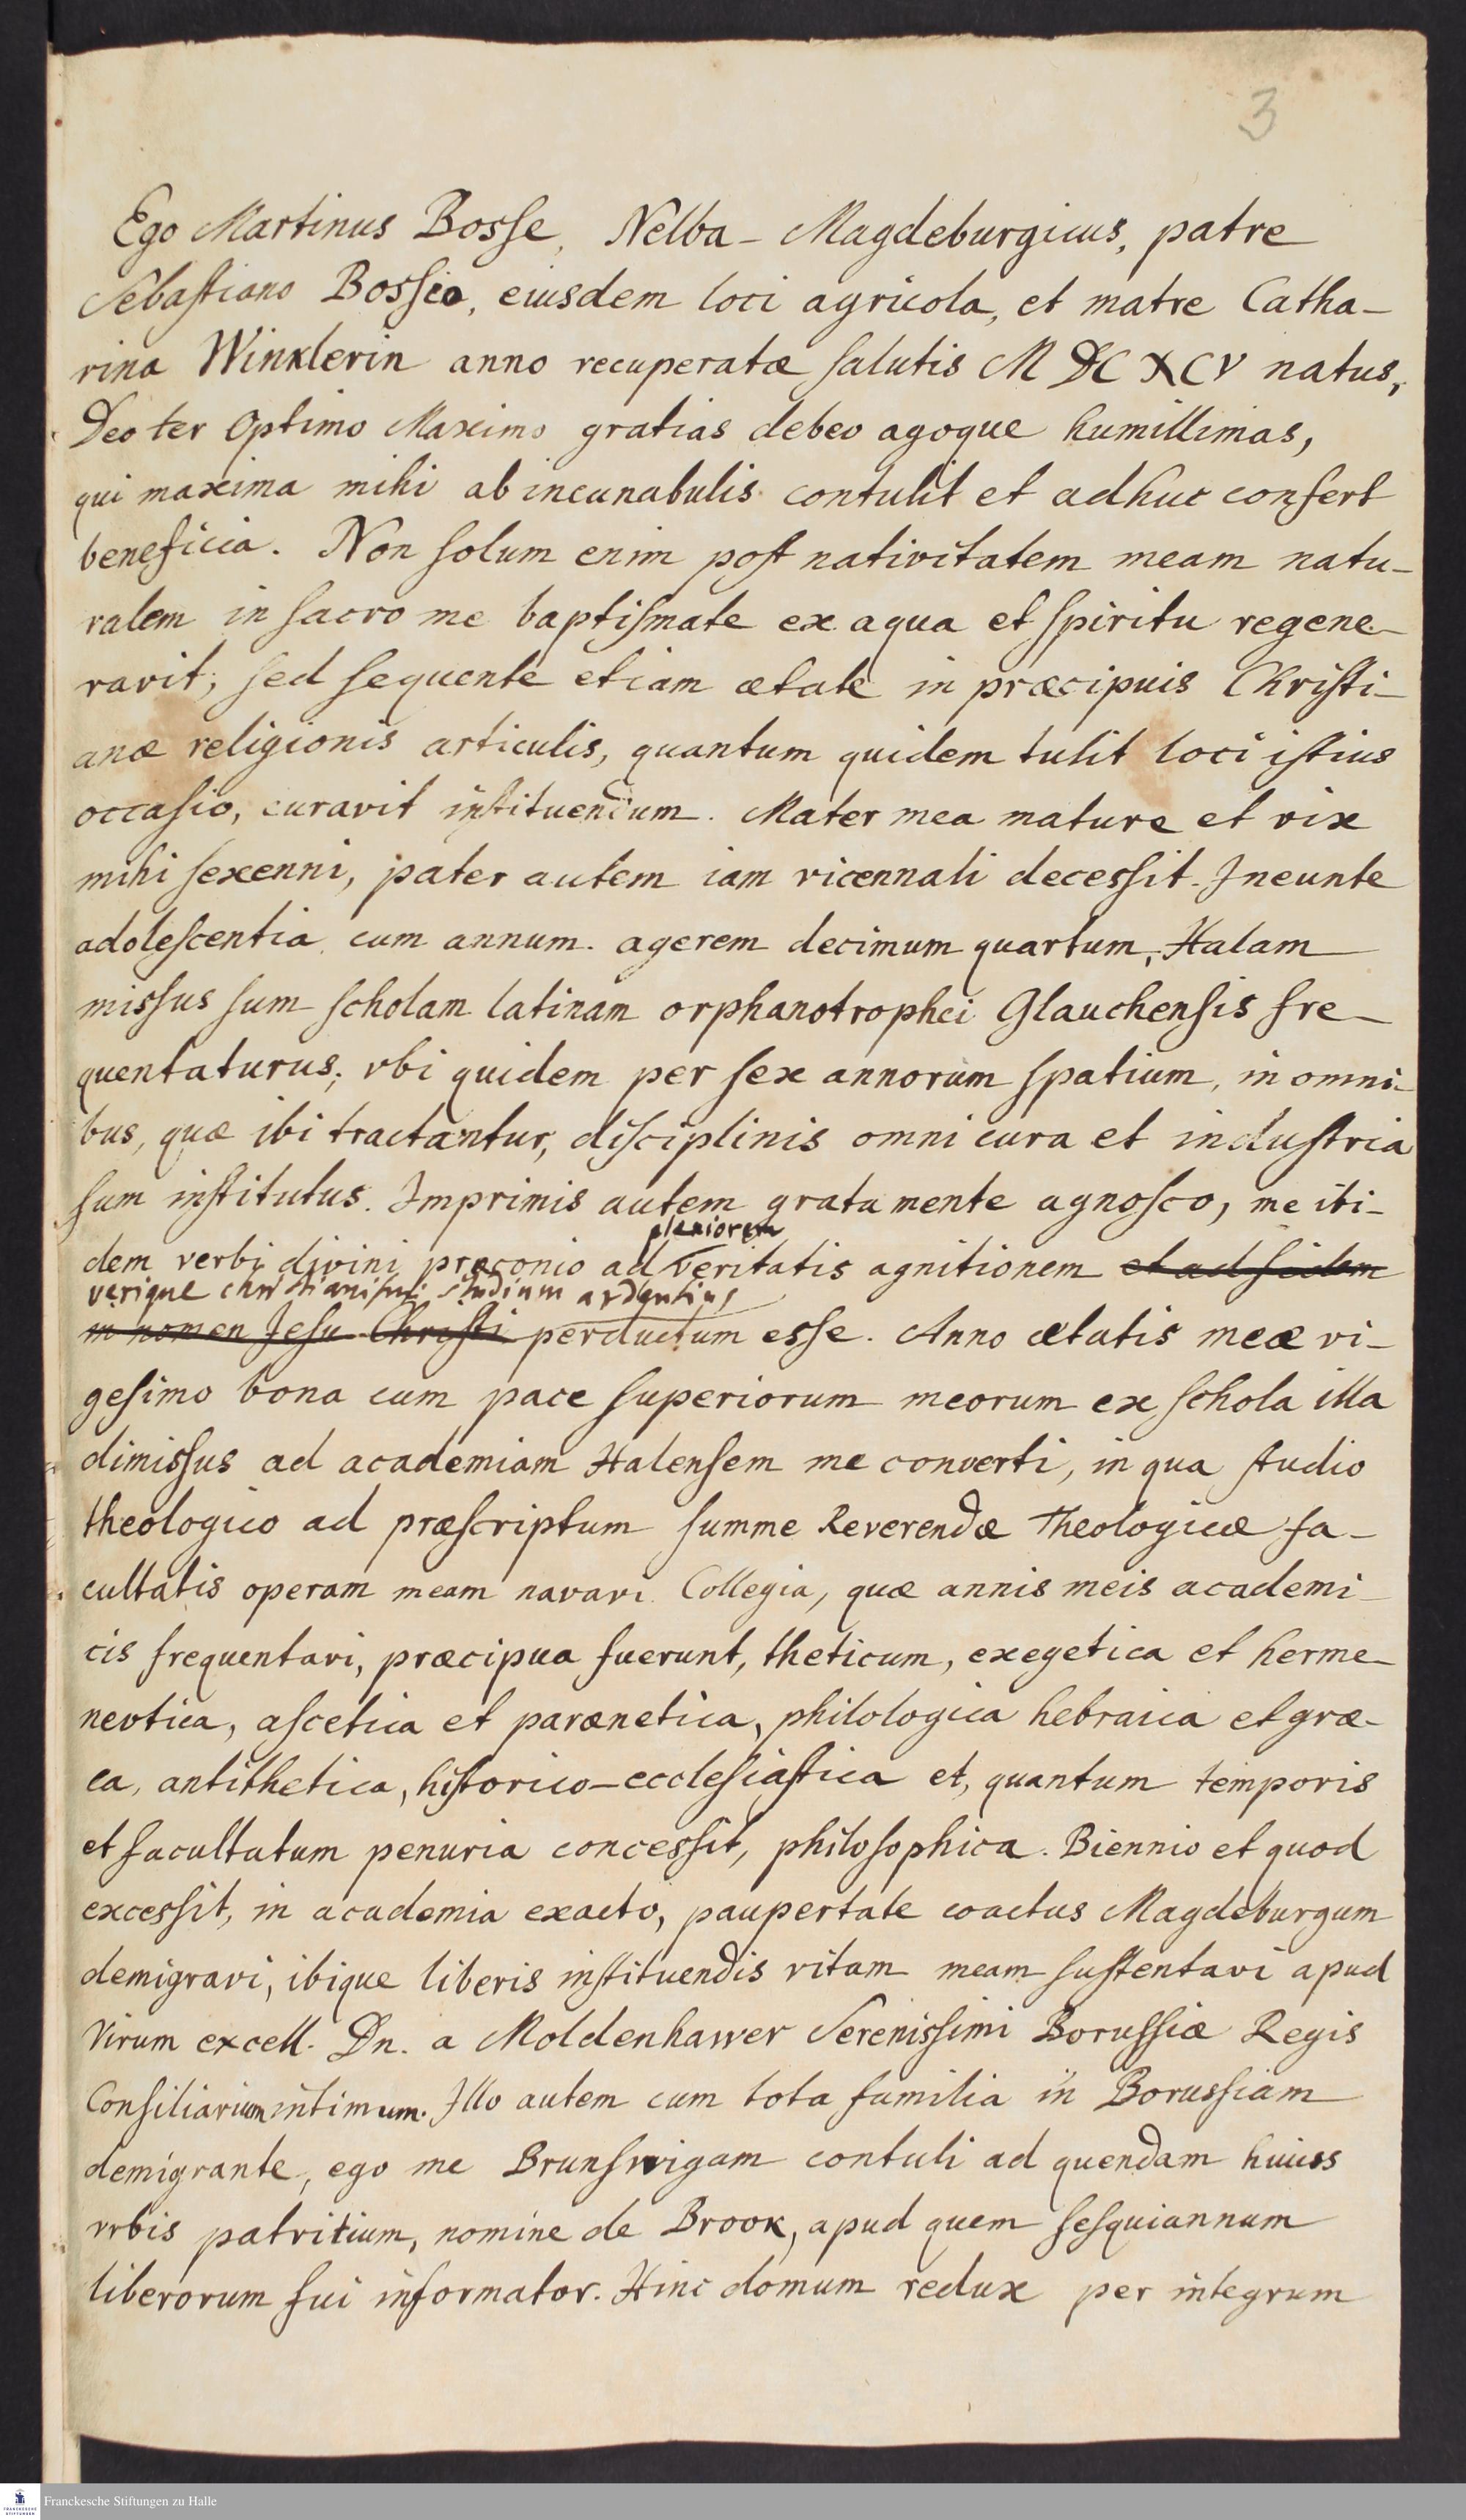 3
Ego Martinus Bosse, Nelba - Magdeburgicus, patre
Sebastiano Bossio, eiusdem loci agricola, et matre Catha-
rina Winklerin anno recuperatæ salutis M DC XCV natus,
Deo ter Optimo Maximo gratias debeo agoque humillimas,
qui maxima mihi ab incunabulis contulit et adhuc confert
beneficia. Non solum enim post nativitatem meam natu-
ralem in sacro me baptismate ex aqua et spiritu regene-
ravit; sed sequente etiam ætate in præcipuis Christi-
anæ religionis articulis, quantum quidem tulit loci istius
occasio, curavit instituendum. Mater mea mature et vix
mihi sexenni, pater autem iam vicennali decessit. Ineunte
adolescentia cum annum agerem decimum quartum, Halam
missus sum scholam latinam orphanotrophei Glauchensis fre-
quentaturus; vbi quidem per sex annorum spatium, in omni-
bus, quæ ibi tractantur, disciplinis omni cura et industria
sum institutus. Imprimis autem grata mente agnosco, me ibi-
pleniorem
dem verbi divini præconio ad veritatis agnitionem et ad fidem
verique christianismi studium ardentius
in nomen Jesu Christi perductum esse. Anno ætatis meæ vi-
gesimo bona cum pace superiorum meorum ex schola illa
dimissus ad academiam Halensem me converti, in qua studio
theologico ad præscriptum summe Reverendæ Theologicæ fa-
cultatis operam meam navavi. Collegia, quæ annis meis academi-
cis frequentavi, præcipua fuerunt, theticum, exegetica et herme-
nevtica, ascetica et parænetica, philologica hebraica et græ-
ca, antithetica, historico-ecclesiastica et, quantum temporis
et facultatum penuria concessit, philosophica. Biennio et quod
excessit, in academia exacto, paupertate coactus Magdeburgum
demigravi, ibique liberis instituendis vitam meam sustentavi apud
Virum excell. Dn. a Moldenhawer Serenissimi Borussiæ Regis
Consiliarium intimum. Illo autem cum tota familia in Borussiam
demigrante, ego me Brunswigam contuli ad quendam huius
vrbis patritium, nomine de Brook, apud quem sesquiannum
liberorum fui informator. Hinc domum redux per integrum
Franckesche Stiftungen zu Halle
FRANCKESCHE STIFTUNGEN